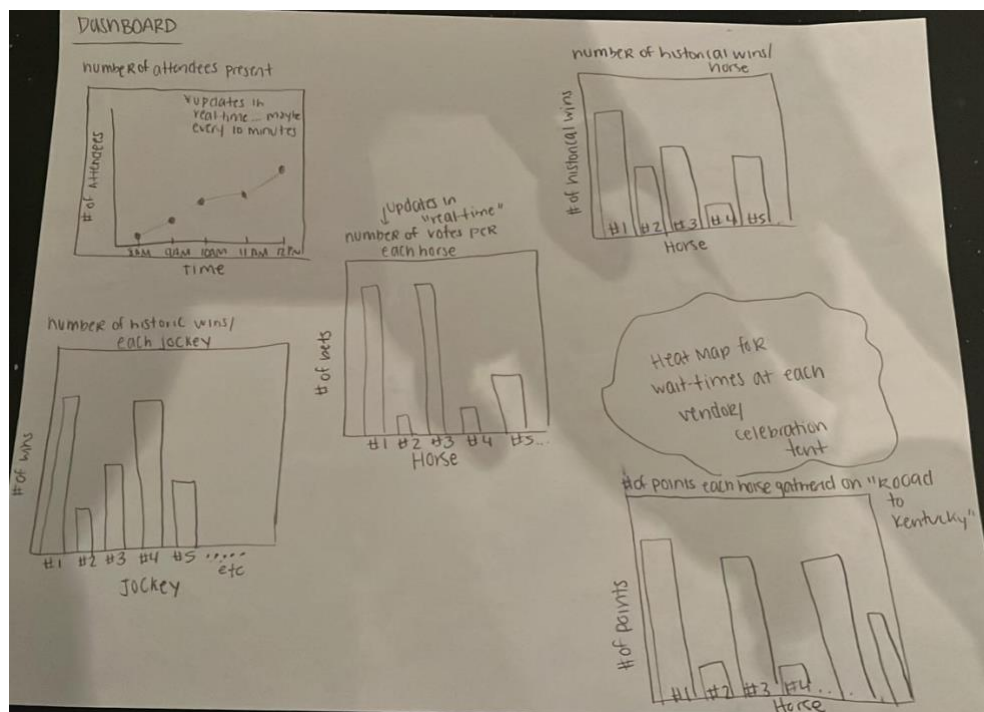 DASHBOARD
number of attendees present
*updates in
real-time... maybe
every 10 minutes
# of Attendees
8AM 9AM 10AM 11AM 12PM
Time
number of historical wins/
horse
# of historical wins
#1 #2 #3 #4 #5...
Horse
updates in
"real-time"
number of votes per
each horse
# of bets
#1 #2 #3 #4 #5...
Horse
number of historic wins/
each jockey
# of wins
#1 #2 #3 #4 #5 ......
etc
Jockey
Heat Map for
wait-times at each
vendor/
celebration
tent
# of points each horse gatherd on "Rooad
to
Kentucky"
# of points
#1 #2 #3 #4....
Horse